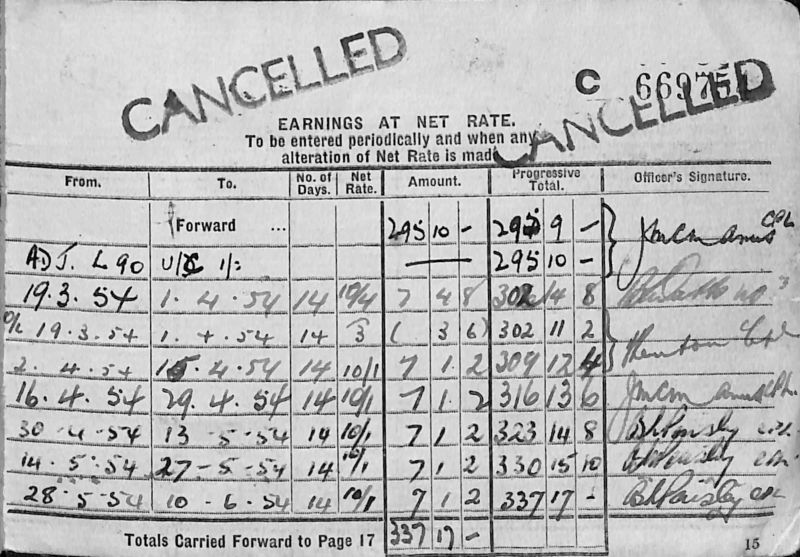 CANCELLED
C 669751
CANCELLED
EARNINGS AT NET RATE.
To be entered periodically and when any
alteration of Net Rate is made
From. To. No. of Days. Net Rate. Amount. Progressive Total. Officer's Signature.
Forward ... 295 10 - 295 9 - CPL
ADJ. L90 U/C 1/: — 295 10 -
19.3.54 1.4.54 14 10/4 7 4 8 302 14 8
O/L 19.3.54 1.4.54 14 3 ( 3 6) 302 11 2 Cpl
2.4.54 15.4.54 14 10/1 7 1 2 309 12 4
16.4.54 29.4.54 14 10/1 7 1 2 316 13 6 CPL.
30-4-54 13-5-54 14 10/1 7 1 2 323 14 8
14.5.54 27-5-54 14 10/1 7 1 2 330 15 10
28.5.54 10-6-54 14 10/1 7 1 2 337 17 - Paisley
Totals Carried Forward to Page 17 337 17 -
15